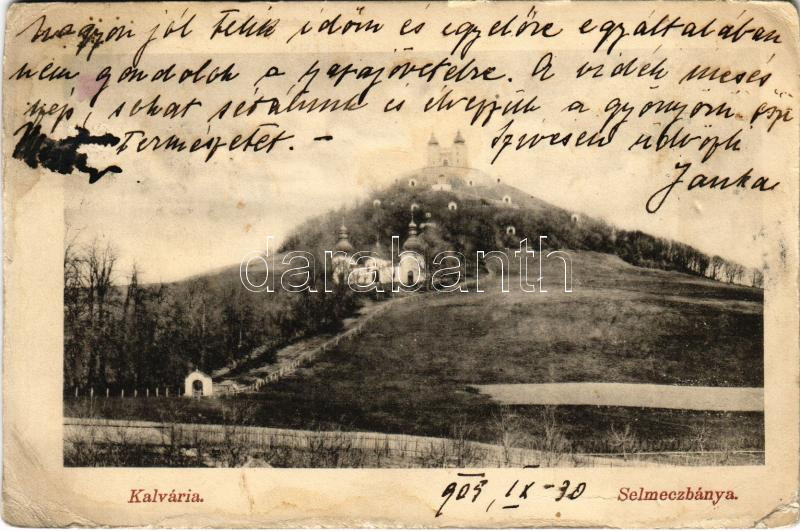 Nagyon jól telik időm és egyelőre egyáltalában
nem gondolok a hazajövetelre. A vidék mesés
szép, sokat sétálunk és élvezzük a gyönyörű őszi
természetet. —
Szivesen üdvözli
Janka
darabanth
Kalvária.
905, IX - 30
Selmeczbánya.